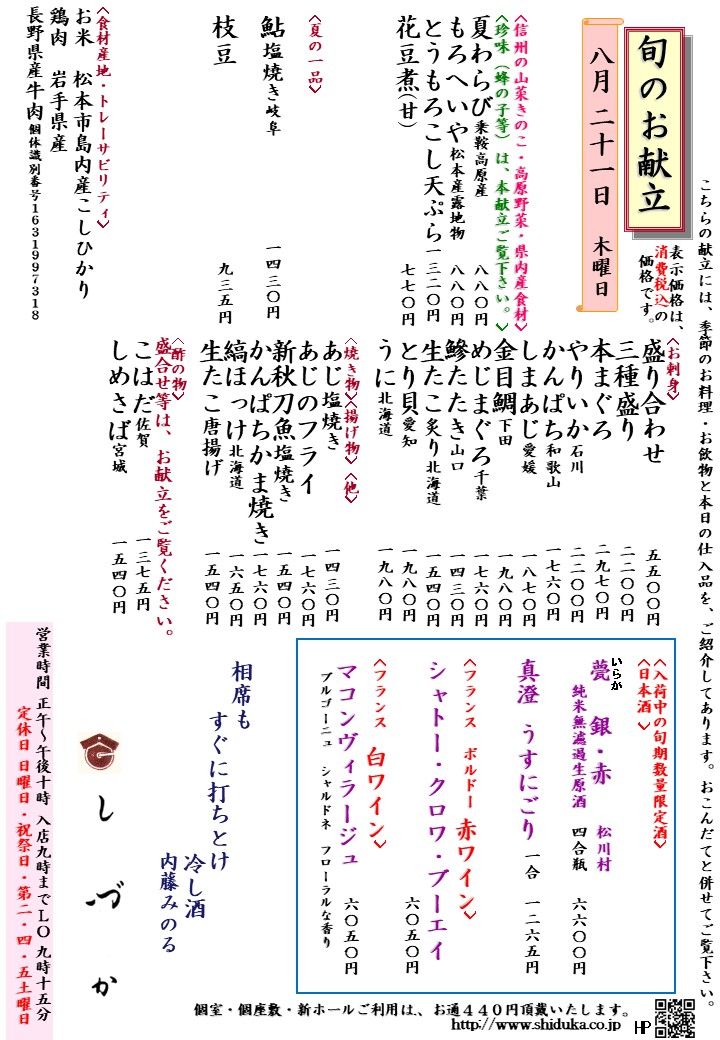 こちらの献立には、季節のお料理・お飲物と本日の仕入品を、ご紹介してあります。おこんだてと併せてご覧下さい。
旬のお献立
八月二十一日 木曜日
表示価格は、
消費税込の
価格です。
<信州の山菜きのこ・高原野菜・県内産食材>
<珍味（蜂の子等）は、本献立ご覧下さい。>
夏わらび 乗鞍高原産 八八〇円
もろへいや 松本産露地物 八八〇円
とうもろこし天ぷら 一三二〇円
花豆煮（甘） 七七〇円
<夏の一品>
鮎塩焼き 岐阜 一四三〇円
枝豆 九三五円
<食材産地・トレーサビリティ>
お米 松本市島内産こしひかり
鶏肉 岩手県産
長野県産牛肉 個体識別番号1631997318
<お刺身>
盛り合わせ 五五〇〇円
三種盛り 二二〇〇円
本まぐろ 二九七〇円
やりいか 石川 二二〇〇円
かんぱち 和歌山 一七六〇円
しまあじ 愛媛 一八七〇円
金目鯛 下田 一九八〇円
めじまぐろ 千葉 一七六〇円
鰺たたき 山口 一四三〇円
生たこ炙り 北海道 一五四〇円
とり貝 愛知 一九八〇円
うに 北海道 一九八〇円
<焼き物><揚げ物><他>
あじ塩焼き 一四三〇円
あじのフライ 一七六〇円
新秋刀魚塩焼き 一五四〇円
かんぱちかま焼き 一七六〇円
縞ほっけ 北海道 一六五〇円
生たこ唐揚げ 一五四〇円
<酢の物>
盛合せ等は、お献立をご覧ください。
こはだ 佐賀 一三七五円
しめさば 宮城 一五四〇円
<入荷中の旬期数量限定酒>
<日本酒>
いらか
甍 銀・赤 松川村
純米無濾過生原酒 四合瓶 六六〇〇円
真澄 うすにごり 一合 一二六五円
<フランス ボルドー 赤ワイン>
シャトー・クロワ・ブーエイ 六〇五〇円
<フランス 白ワイン>
マコンヴィラージュ 六〇五〇円
ブルゴーニュ シャルドネ フローラルな香り
相席も
すぐに打ちとけ
冷し酒
内藤みのる
しづか
営業時間 正午～午後十時 入店九時まで LO 九時十五分
定休日 日曜日・祝祭日・第二・四・五土曜日
個室・個座敷・新ホールご利用は、お通440円頂戴いたします。
http://www.shiduka.co.jp HP